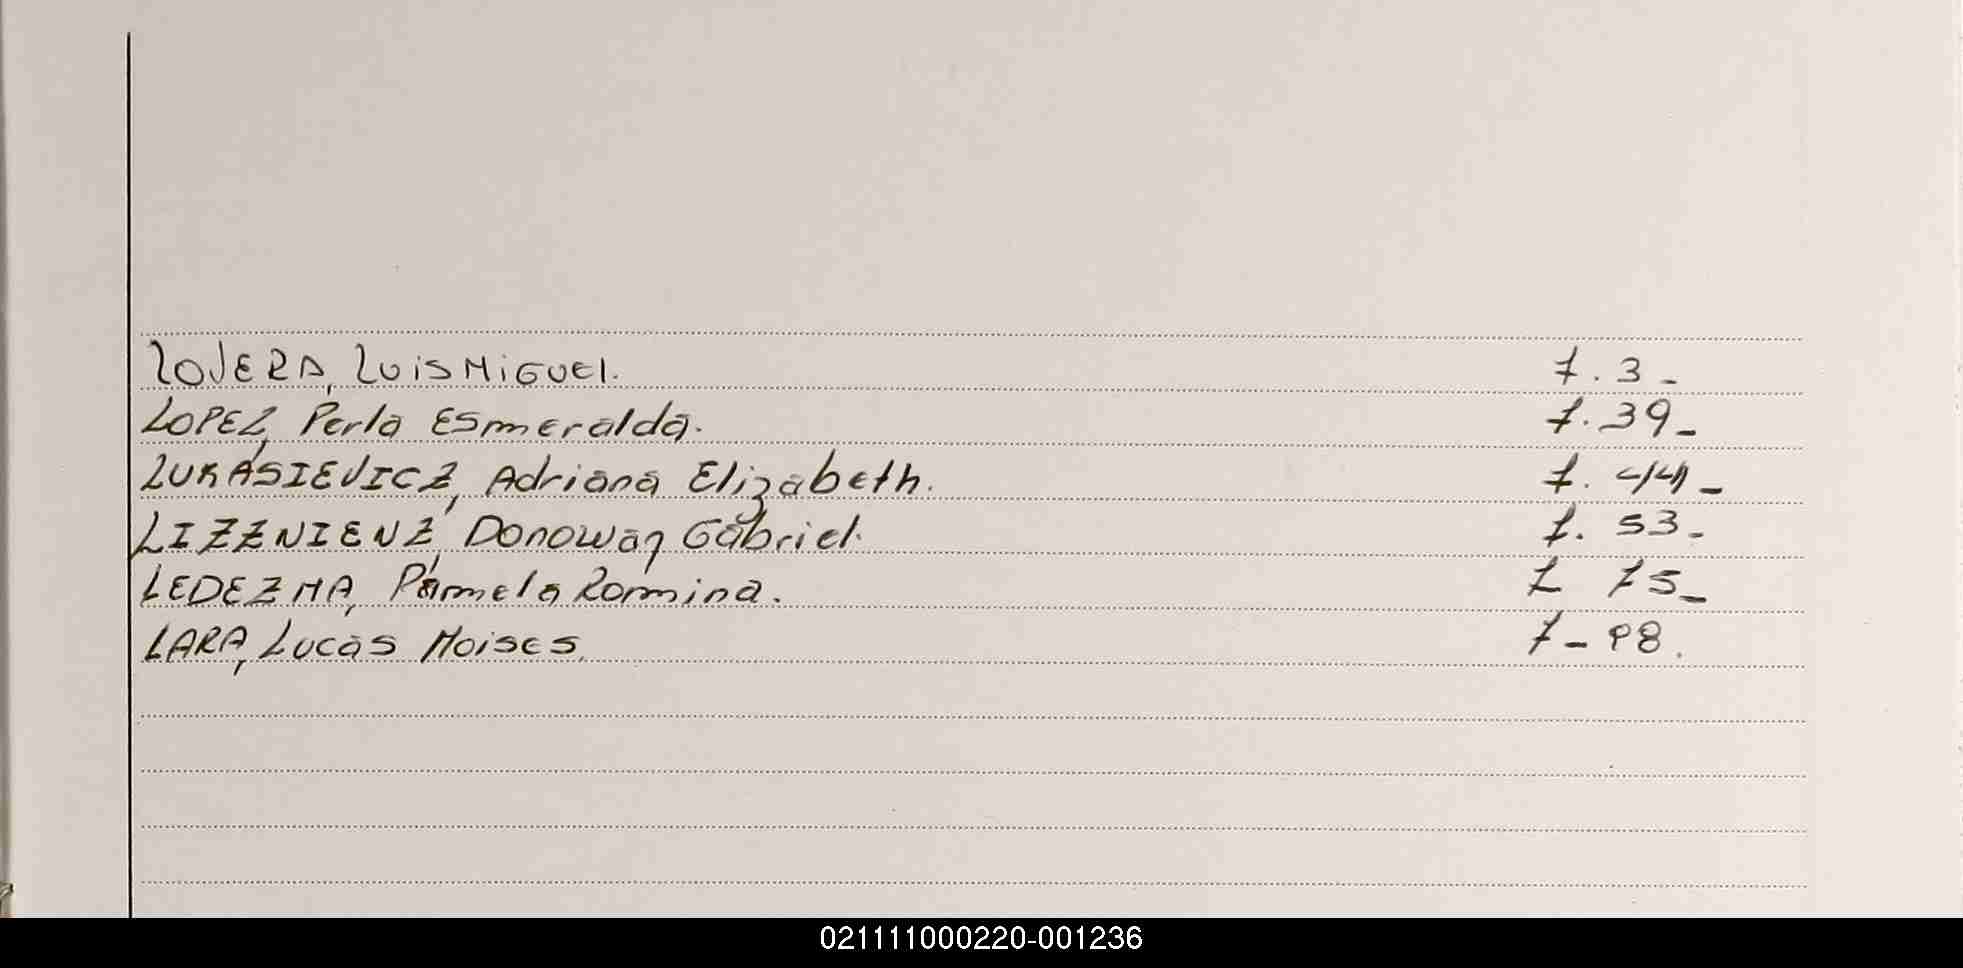 LOJERA, LUIS MIGUEL. f. 3_
LOPEZ, Perla Esmeralda. f. 39_
LUKASIEVICZ, Adriana Elizabeth. f. 44_
LIZZNIENZ, Donowan Gabriel. f. 53_
LEDEZMA, Pamela Romina. f 75_
LARA, Lucas Moises. f_ 98.
021111000220-001236